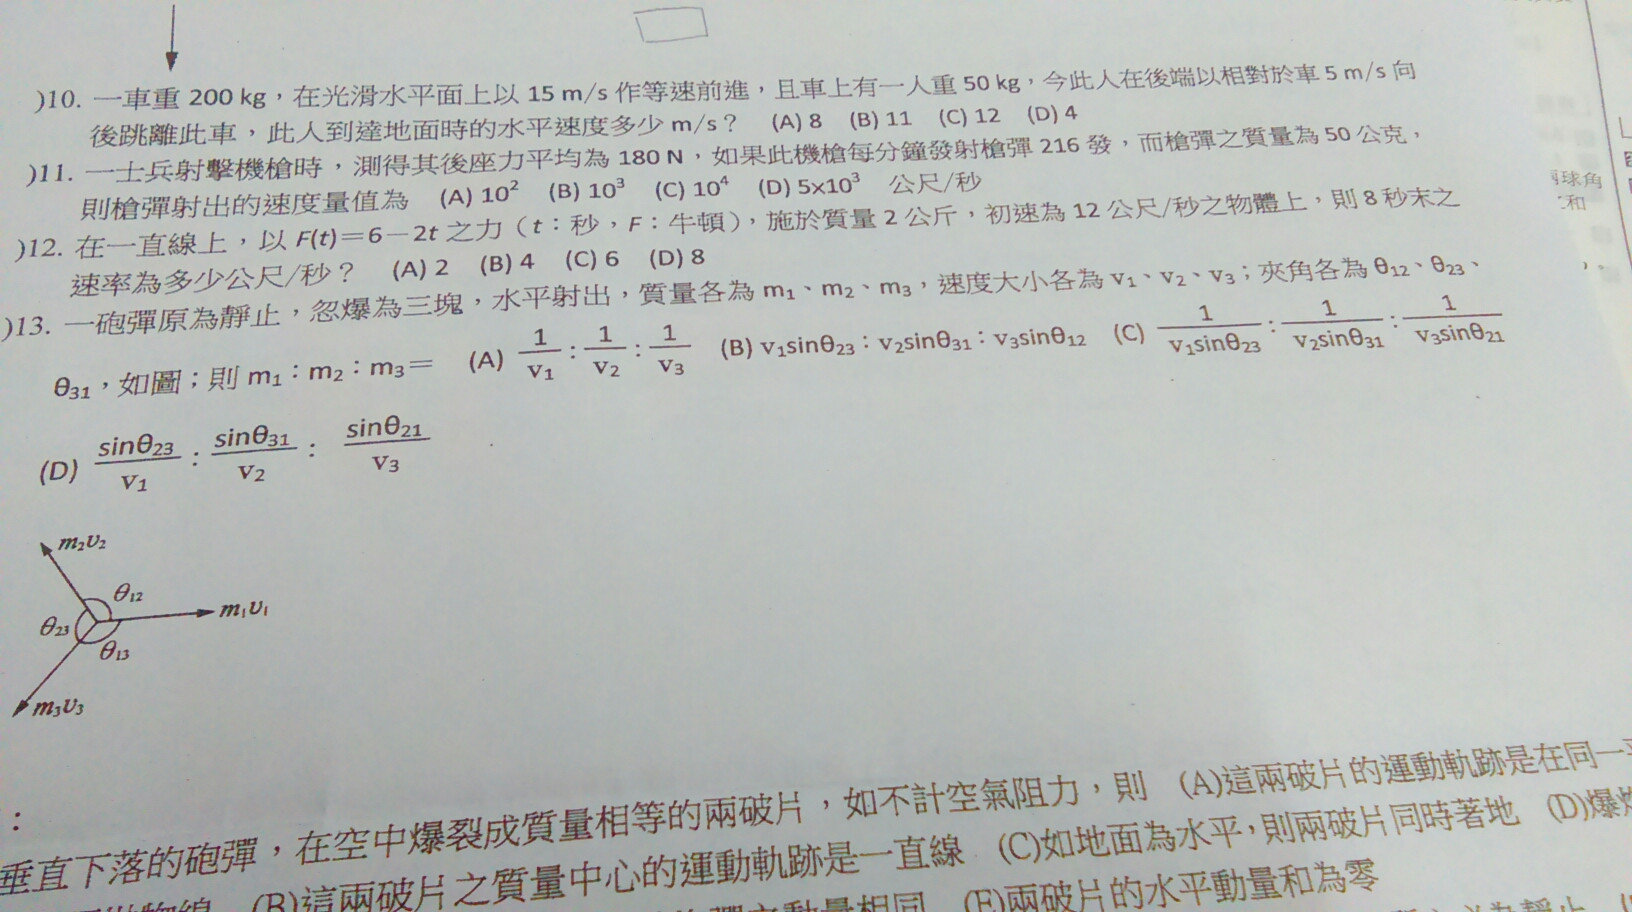 )10. 一車重 200 kg，在光滑水平面上以 15 m/s 作等速前進，且車上有一人重 50 kg，今此人在後端以相對於車 5 m/s 向
後跳離此車，此人到達地面時的水平速度多少 m/s？ (A) 8 (B) 11 (C) 12 (D) 4
)11. 一士兵射擊機槍時，測得其後座力平均為 180 N，如果此機槍每分鐘發射槍彈 216 發，而槍彈之質量為 50 公克，
則槍彈射出的速度量值為 (A) 10² (B) 10³ (C) 10⁴ (D) 5x10³ 公尺/秒
)12. 在一直線上，以 F(t)＝6－2t 之力（t：秒，F：牛頓），施於質量 2 公斤，初速為 12 公尺/秒之物體上，則 8 秒末之
速率為多少公尺/秒？ (A) 2 (B) 4 (C) 6 (D) 8
)13. 一砲彈原為靜止，忽爆為三塊，水平射出，質量各為 m₁、m₂、m₃，速度大小各為 v₁、v₂、v₃；夾角各為 θ₁₂、θ₂₃、
θ₃₁，如圖；則 m₁：m₂：m₃＝ (A) 1/v₁：1/v₂：1/v₃ (B) v₁sinθ₂₃：v₂sinθ₃₁：v₃sinθ₁₂ (C) 1/v₁sinθ₂₃：1/v₂sinθ₃₁：1/v₃sinθ₂₁
(D) sinθ₂₃/v₁：sinθ₃₁/v₂：sinθ₂₁/v₃
m₂υ₂
θ₁₂
m₁υ₁
θ₂₃
θ₁₃
m₃υ₃
：
垂直下落的砲彈，在空中爆裂成質量相等的兩破片，如不計空氣阻力，則 (A)這兩破片的運動軌跡是在同一
(B)這兩破片之質量中心的運動軌跡是一直線 (C)如地面為水平，則兩破片同時著地 (D)爆
(E)兩破片的水平動量和為零
球角
和